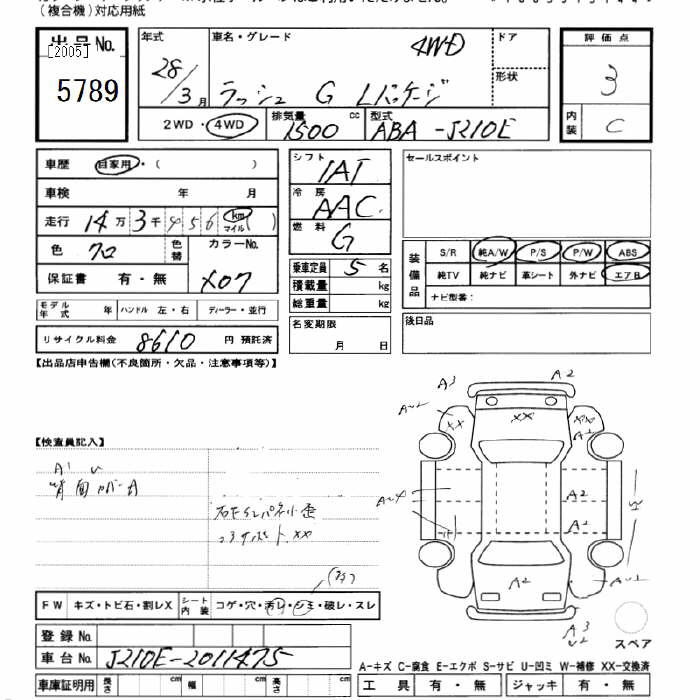 (複合機)対応用紙
出品No.
[2005]
5789
年式
28/3月
車名・グレード
4WD
ラッシュ G Lパッケージ
ドア
形状
評価点
3
内装
C
2WD・4WD
排気量
1500 cc
型式
ABA-J210E
車歴 自家用・( )
車検 年 月
走行 14万3千456 km マイル ( )
色 クロ 色替 カラーNo.
X07
保証書 有・無
モデル年式 年 ハンドル 左・右 ディーラー・並行
リサイクル料金 8610 円 預託済
シフト
IAT
冷房
AAC
燃料
G
乗車定員 5 名
積載量 kg
総重量 kg
名変期限
月 日
セールスポイント
装備品
S/R 純A/W P/S P/W ABS
純TV 純ナビ 革シート 外ナビ エアB
ナビ型番:
後日品
【出品店申告欄(不良箇所・欠品・注意事項等)】
【検査員記入】
背面カバーA
コアサポートXX
FW キズ・トビ石・割レX シート内装 コゲ・穴・汚レ・シミ・破レ・スレ
登録No.
車台No. J210E-2011475
車庫証明用 長さ cm 幅 cm 高さ cm
A3
A2
XX
XX
XX
A2
A2
A2
A2
W
A3
スペア
A-キズ C-腐食 E-エクボ S-サビ U-凹ミ W-補修 XX-交換済
工具 有・無 ジャッキ 有・無